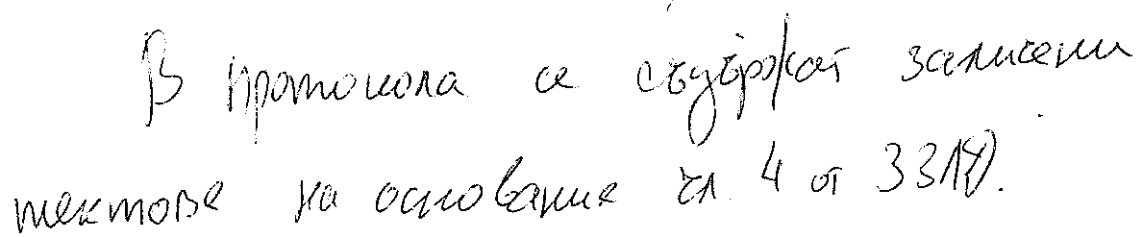 В протокола се съдържат заличени
текстове на основание чл. 4 от ЗЗЛД.